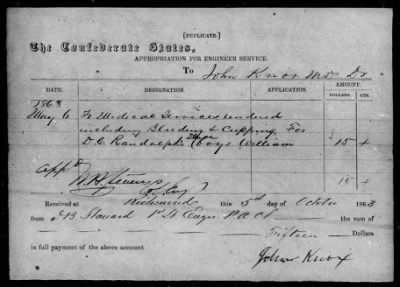 [DUPLICATE.]
The Confederate States,
APPROPRIATION FOR ENGINEER SERVICE.
To John Knox MD Dr
DATE. DESIGNATION. APPLICATION. AMOUNT.
DOLLARS. CTS.
1863
May 6 To Medical Services rendered
including Bleeding & Cupping, For
D. C. Randolph's Boy William 15
appd
15
Received at Richmond this 5th day of October 1863
from 1st Lt Engrs P.A.C.S. the sum of
Fifteen Dollars
in full payment of the above account
John Knox